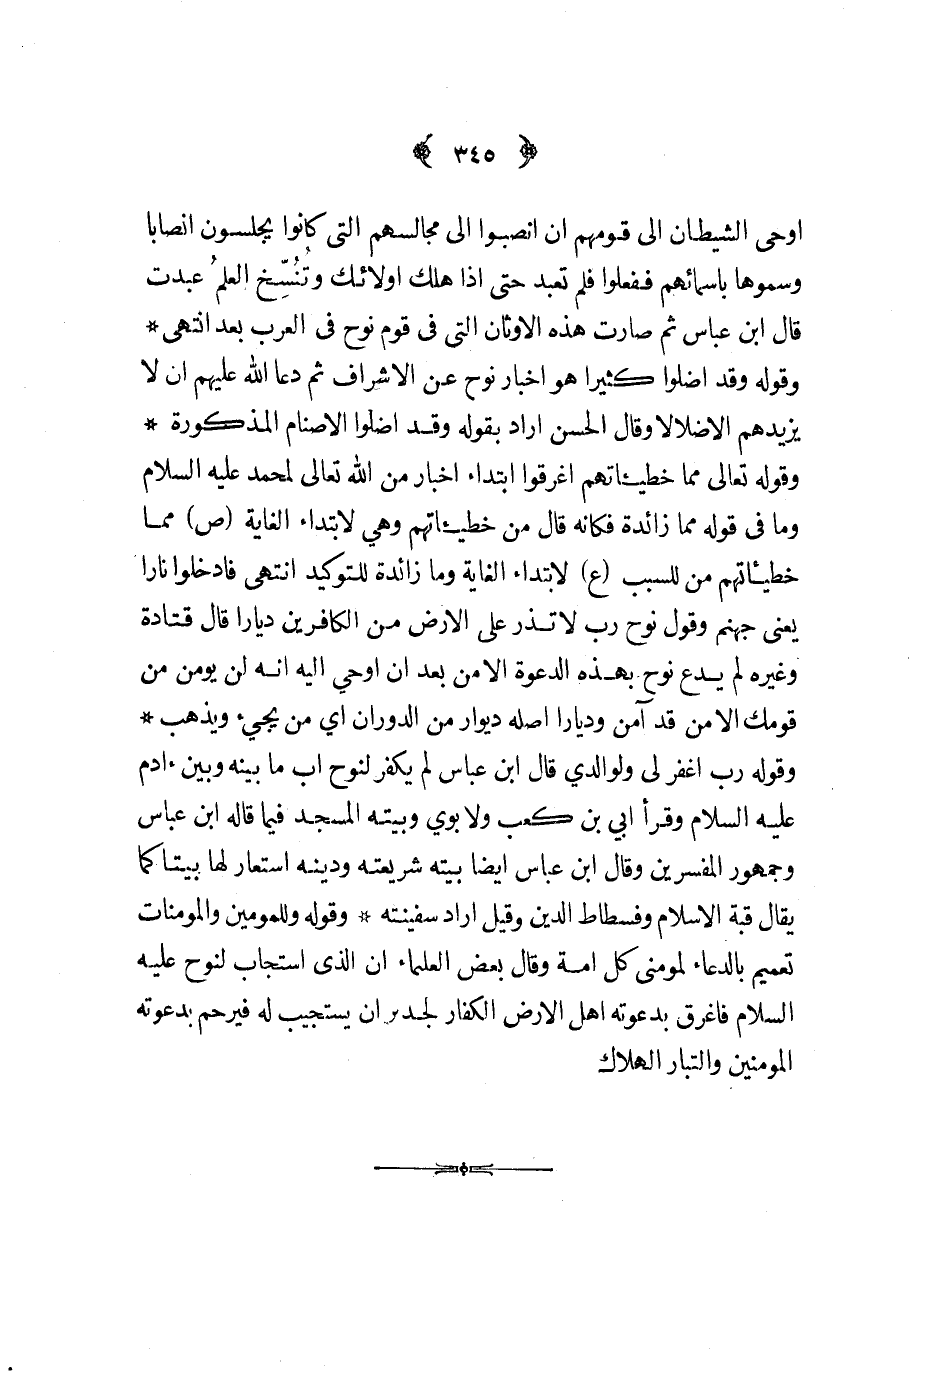 ﴿ ٣٤٥ ﴾
اوحى الشيطان الى قومهم ان انصبوا الى مجالسهم التى كانوا يجلسون انصابا
وسموها باسمائهم ففعلوا فلم تعبد حتى اذا هلك اولائك وتُنُسِّخ العلمُ عبدت
قال ابن عباس ثم صارت هذه الاوثان التى فى قوم نوح فى العرب بعد انتهى *
وقوله وقد اضلوا كثيرا هو اخبار نوح عن الاشراف ثم دعا الله عليهم ان لا
يزيدهم الاضلالا وقال الحسن اراد بقوله وقد اضلوا الاصنام المذكورة *
وقوله تعالى مما خطيئاتهم اغرقوا ابتداء اخبار من الله تعالى لمحمد عليه السلام
وما فى قوله مما زائدة فكانه قال من خطيئاتهم وهي لابتداء الغاية (ص) مما
خطيئاتهم من للسبب (ع) لابتداء الغاية وما زائدة للتوكيد انتهى فادخلوا نارا
يعنى جهنم وقول نوح رب لا تذر على الارض من الكافرين ديارا قال قتادة
وغيره لم يدع نوح بهذه الدعوة الا من بعد ان اوحي اليه انه لن يومن من
قومك الا من قد آمن وديارا اصله ديوار من الدوران اي من يجيء ويذهب *
وقوله رب اغفر لى ولوالدي قال ابن عباس لم يكفر لنوح اب ما بينه وبين ءادم
عليه السلام وقرأ ابي بن كعب ولابوي وبيته المسجد فيما قاله ابن عباس
وجمهور المفسرين وقال ابن عباس ايضا بيته شريعته ودينه استعار لها بيتا كما
يقال قبة الاسلام وفسطاط الدين وقيل اراد سفينته * وقوله وللمومنين والمومنات
تعميم بالدعاء لمومنى كل امة وقال بعض العلماء ان الذى استجاب لنوح عليه
السلام فاغرق بدعوته اهل الارض الكفار لجدير ان يستجيب له فيرحم بدعوته
المومنين والتبار الهلاك